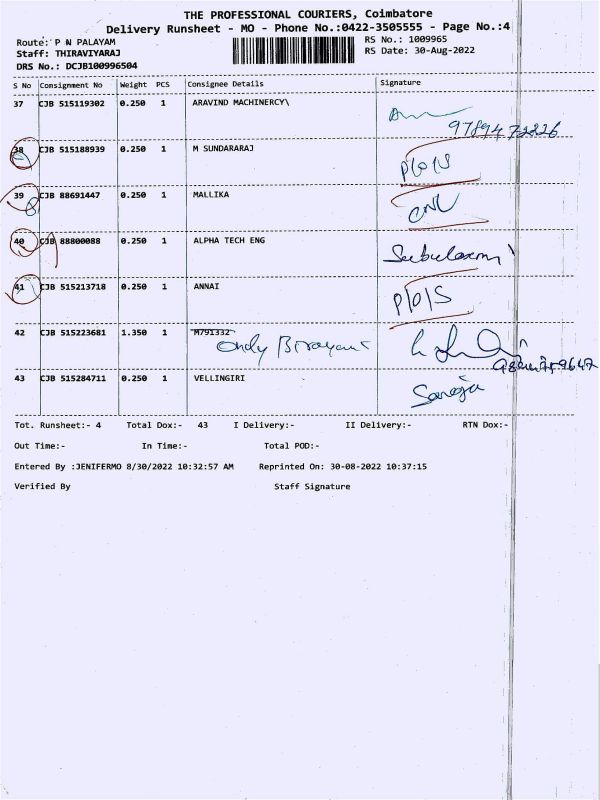 THE PROFESSIONAL COURIERS, Coimbatore
Delivery Runsheet - MO - Phone No.:0422-3505555 - Page No.:4
Route: P N PALAYAM
RS No.: 1009965
Staff: THIRAVIYARAJ
RS Date: 30-Aug-2022
DRS No.: DCJB100996504
S No Consignment No Weight PCS Consignee Details Signature
37 CJB 515119302 0.250 1 ARAVIND MACHINERCY\
9789472226
38 CJB 515188939 0.250 1 M SUNDARARAJ P/O/S
39 CJB 88691447 0.250 1 MALLIKA CNL
8
40 CJB 88800088 0.250 1 ALPHA TECH ENG Subulaxmi
41 CJB 515213718 0.250 1 ANNAI P/O/S
42 CJB 515223681 1.350 1 M791332
43 CJB 515284711 0.250 1 VELLINGIRI Saroja
Tot. Runsheet:- 4 Total Dox:- 43 I Delivery:- II Delivery:- RTN Dox:-
Out Time:- In Time:- Total POD:-
Entered By :JENIFERMO 8/30/2022 10:32:57 AM Reprinted On: 30-08-2022 10:37:15
Verified By Staff Signature